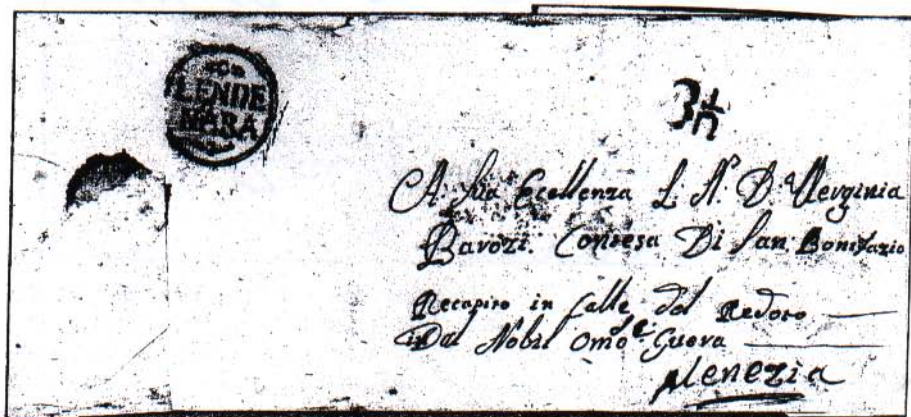 LENDE
NARA
A Sua Ecellenza L. N. D. Verginia
Barozi. Contesa Di San Bonifazio
Recapito in Calle del
Dal Nobil Omo Guera
Venezia